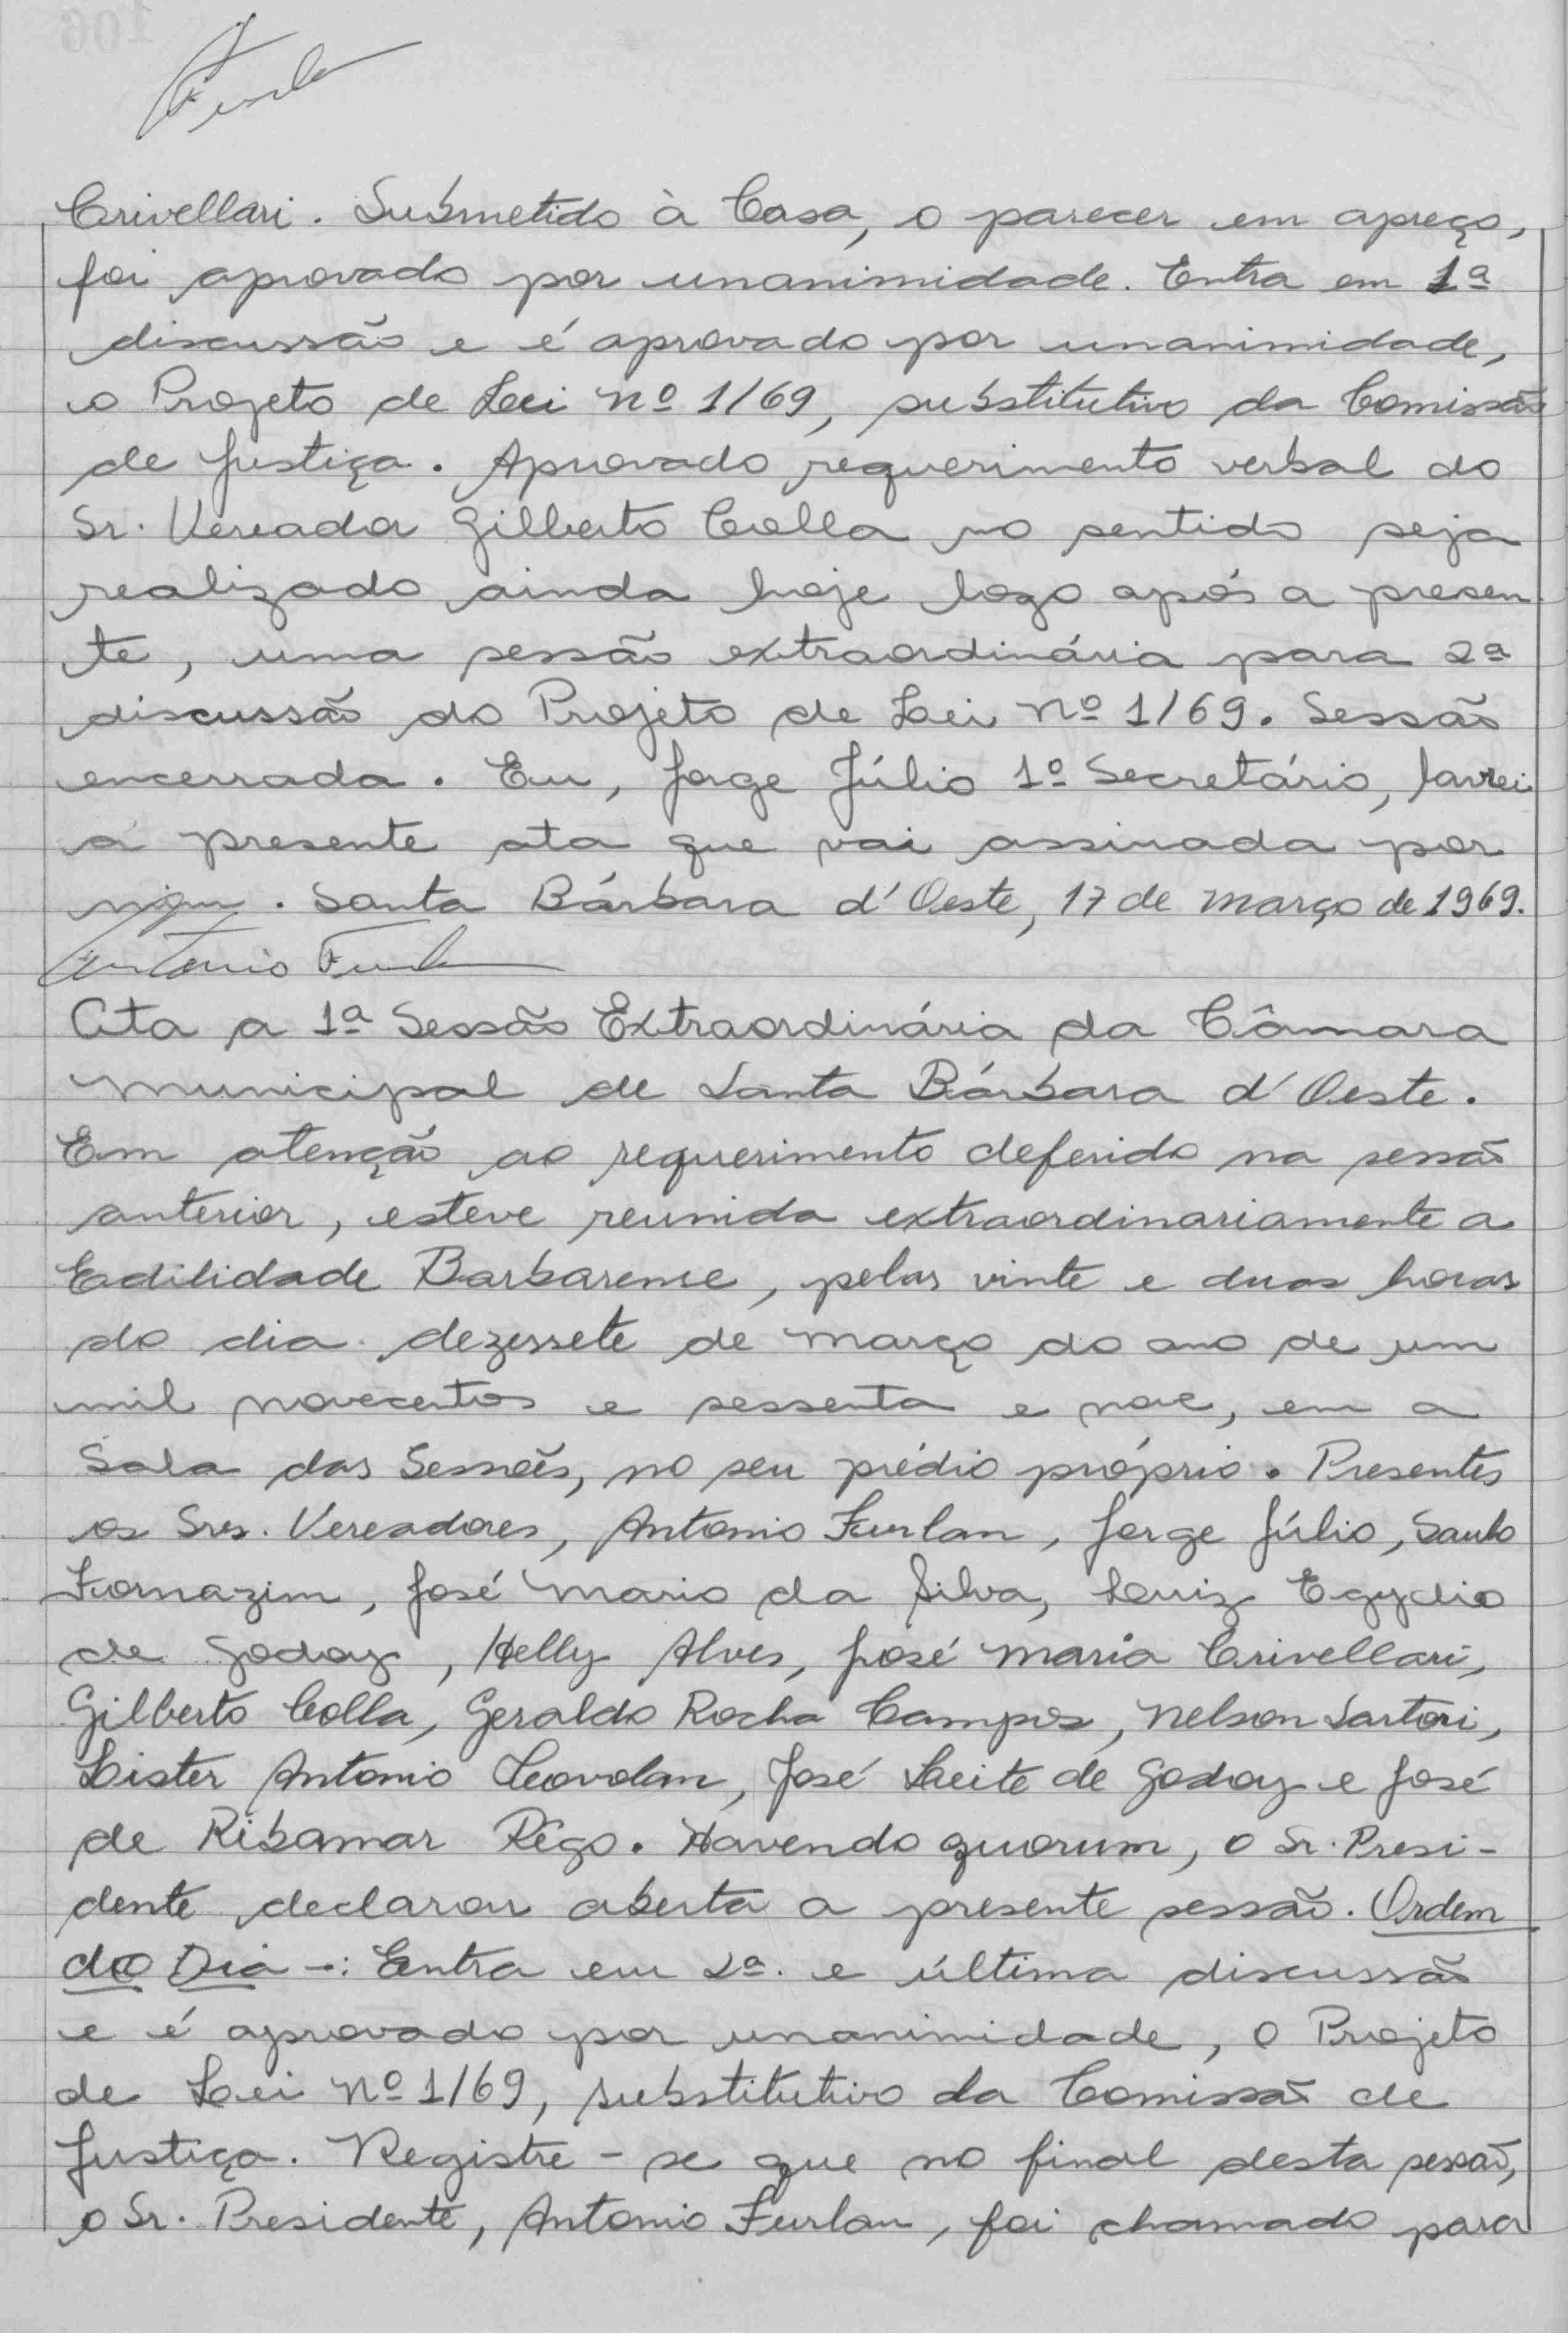 Crivellari. Submetido à Casa, o parecer em apreço,
foi aprovado por unanimidade. Entra em 1ª
discussão e é aprovado por unanimidade,
o Projeto de Lei nº 1/69, substitutivo da Comissão
de Justiça. Aprovado requerimento verbal do
Sr. Vereador Gilberto Colla no sentido seja
realizado ainda hoje logo após a presen
te, uma sessão extraordinária para 2ª
discussão do Projeto de Lei nº 1/69. Sessão
encerrada. Eu, Jorge Júlio 1º Secretário, lavrei
a presente ata que vai assinada por
. Santa Bárbara d'Oeste, 17 de março de 1969.
Antonio Furlan
Ata a 1ª Sessão Extraordinária da Câmara
Municipal de Santa Bárbara d'Oeste.
Em atenção ao requerimento deferido na sessão
anterior, esteve reunida extraordinariamente a
Edilidade Barbarense, pelas vinte e duas horas
do dia dezessete de março do ano de um
mil novecentos e sessenta e nove, em a
Sala das Sessões, no seu prédio próprio. Presentes
os Srs. Vereadores, Antonio Furlan, Jorge Júlio, Saulo
Fornazim, José Mario da Silva, Luiz Egydio
de Godoy, Helly Alves, José Maria Crivellari,
Gilberto Colla, Geraldo Rocha Campos, Nelson Sartori,
Lister Antonio, José Leite de Godoy e José
de Ribamar Rêgo. Havendo quorum, o Sr. Presi-
dente declarou aberta a presente sessão. Ordem
do Dia -: Entra em 2ª. e última discussão
e é aprovado por unanimidade, o Projeto
de Lei nº 1/69, substitutivo da Comissão de
Justiça. Registre-se que no final desta sessão,
o Sr. Presidente, Antonio Furlan, foi chamado para